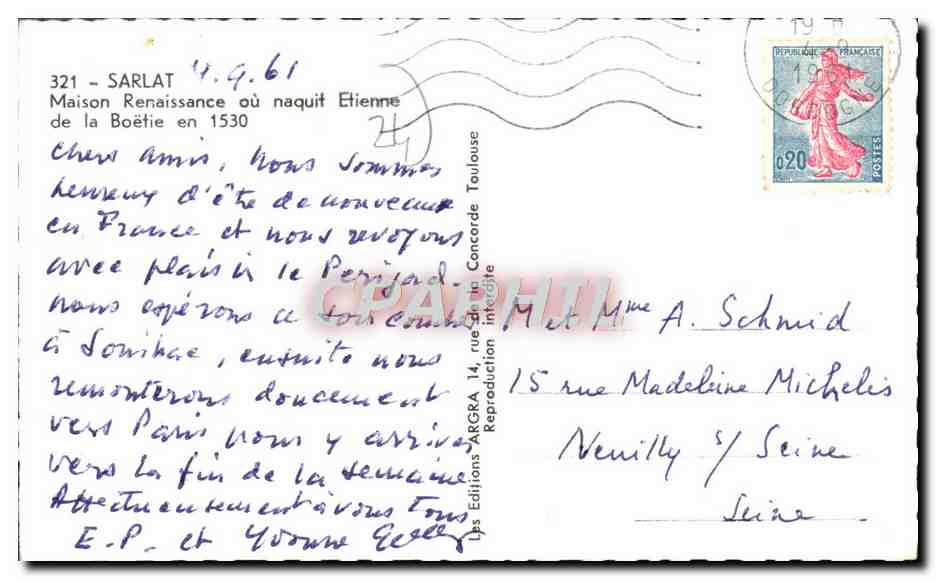 321 - SARLAT 4.9.61
Maison Renaissance où naquit Etienne
de la Boëtie en 1530
24
Chers amis, nous sommes
heureux d'être de nouveau
en France et nous revoyons
avec plaisir le Périgord.
nous espérons ce soir
à Souillac, ensuite nous
remonterons doucement
vers Paris pour y arriver
vers la fin de la semaine
Affectueusement à vous tous
E.P. et Yvonne
Les Editions ARGRA 14, rue de la Concorde Toulouse
Reproduction interdite
REPUBLIQUE FRANÇAISE
0,20
POSTES
19 H
4 9
196
DORDOGNE
CPAPHIL
M et Mme A. Schmid
15 rue Madeleine Michelis
Neuilly s/ Seine
Seine